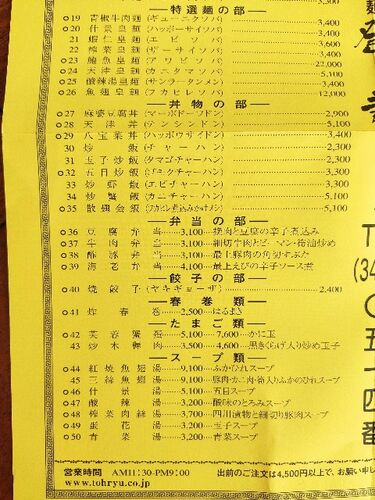 特選麺の部
○19 青椒牛肉麺(ギューニクソバ) 3,400
○20 什景皇麺(ハッポーサイソバ) 3,400
21 蝦仁皇麺(エビソバ) 3,600
22 榨菜皇麺(ザーサイソバ) 3,400
○23 鮑魚皇麺(アワビソバ) 22,000
○24 天津皇麺(カニタマソバ) 5,100
○25 酸辣湯皇麺(サンラータンメン) 3,400
○26 魚翅皇麺(フカヒレソバ) 12,000
丼物の部
○27 麻婆豆腐丼(マーボドーフドン) 2,900
○28 天津丼(テンシンドン) 5,100
○29 八宝菜丼(ハッポウサイドン) 3,400
30 炒飯(チャーハン) 2,300
31 玉子炒飯(タマゴチャーハン) 3,400
○32 五目炒飯(ゴモクチャーハン) 3,400
33 炒蝦飯(エビチャーハン) 3,600
34 炒蟹飯(カニチャーハン) 5,100
○35 散翅会飯
弁当の部
○36 豆腐弁当 3,100 挽肉と豆腐の辛子煮込み
○37 牛肉弁当 3,100 細切牛肉とピーマン・筍油炒め
○38 酢豚弁当 3,100 最上豚肉の角切すぶた
○39 海老弁当 4,100 最上えびの辛子ソース煮
餃子の部
○40 焼餃子(ヤキギョーザ) 2,400
春巻類
○41 炸春巻 2,500 はるまき
たまご類
○42 芙蓉蟹 5,100 7,600 かに玉
43 炒木樨肉 3,500 4,600 黒きくらげ入り炒め玉子
スープ類
○44 紅焼魚翅湯 9,100 ふかひれスープ
○45 三絲魚翅湯 9,100 豚肉・カニ肉・筍入りふかのひれスープ
○46 什景湯 5,100 五目スープ
○47 酸辣湯 3,200 酸味のとろみスープ
○48 榨菜肉絲湯 3,700 四川漬物と細切り豚肉スープ
○49 蛋花湯 3,200 玉子スープ
○50 青菜湯 3,200 青菜スープ
営業時間 AM11:30-PM9:00
www.tohryu.co.jp
出前のご注文は4,500円以上で、お願い申し
T
(34
〇
五
十
四
番